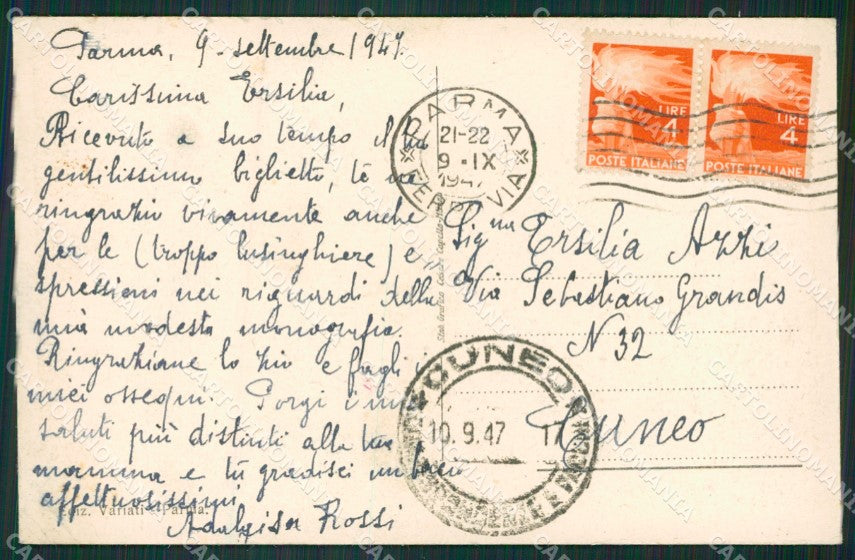 Parma, 9 settembre 1947.
Carissima Ersilia,
Ricevuto a suo tempo il tuo
gentilissimo biglietto, te ne
ringrazio vivamente anche
per le (troppo lusinghiere) e
spressioni nei riguardi della
mia modesta monografia.
Ringraziane lo zio e fagli i
miei ossequi. Porgi i miei
saluti più distinti alla tua
mamma e tu gradisci un bacio
affettuosissimi
Adalgisa Rossi
Ediz. Variati - Parma
PARMA
21-22
9·IX
1947
FERROVIA
LIRE
4
POSTE ITALIANE
LIRE
4
POSTE ITALIANE
Sig.na Ersilia Azzi
Via Sebastiano Grandis
N 32
Cuneo
CUNEO
10.9.47 17
CARTOLINOMANIA